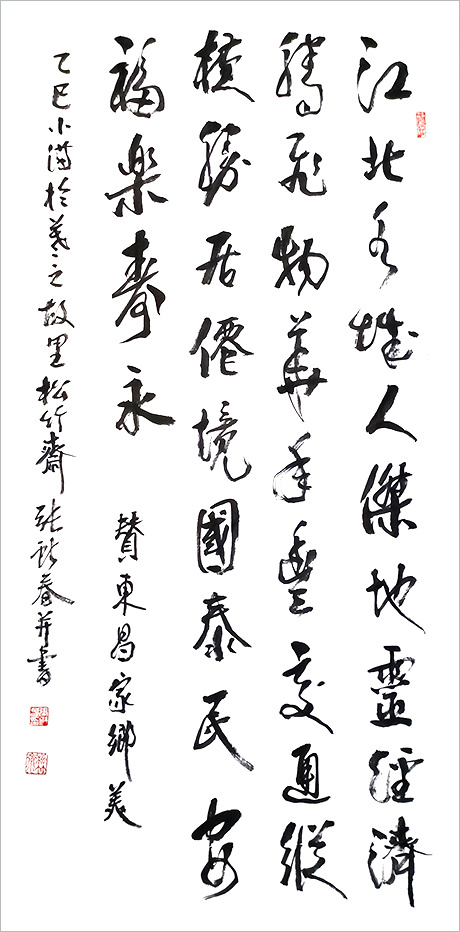 江北水城人傑地靈經濟
騰飛物華年豐交通縱
橫勝居僊境國泰民安
福樂壽永
贊東昌家鄉美
乙巳小滿於羲之故里松竹齋張春并書